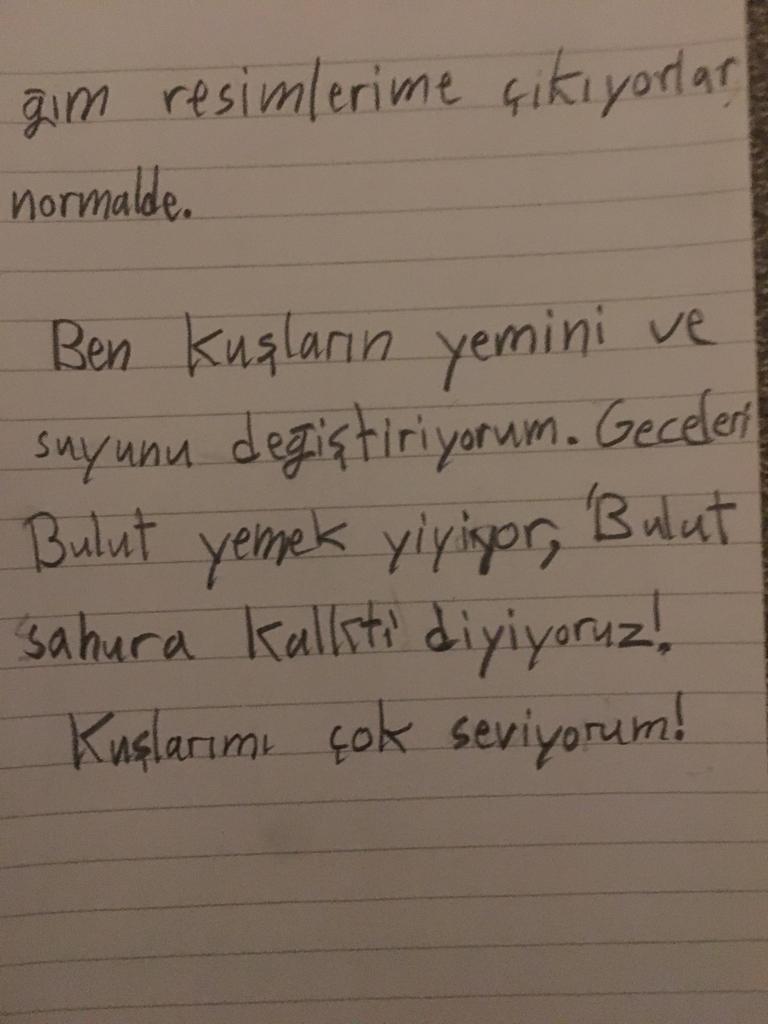 ğım resimlerime çıkıyorlar
normalde.
Ben kuşların yemini ve
suyunu değiştiriyorum. Geceleri
Bulut yemek yiyiyor, 'Bulut
sahura kalktı' diyiyoruz!
Kuşlarımı çok seviyorum!